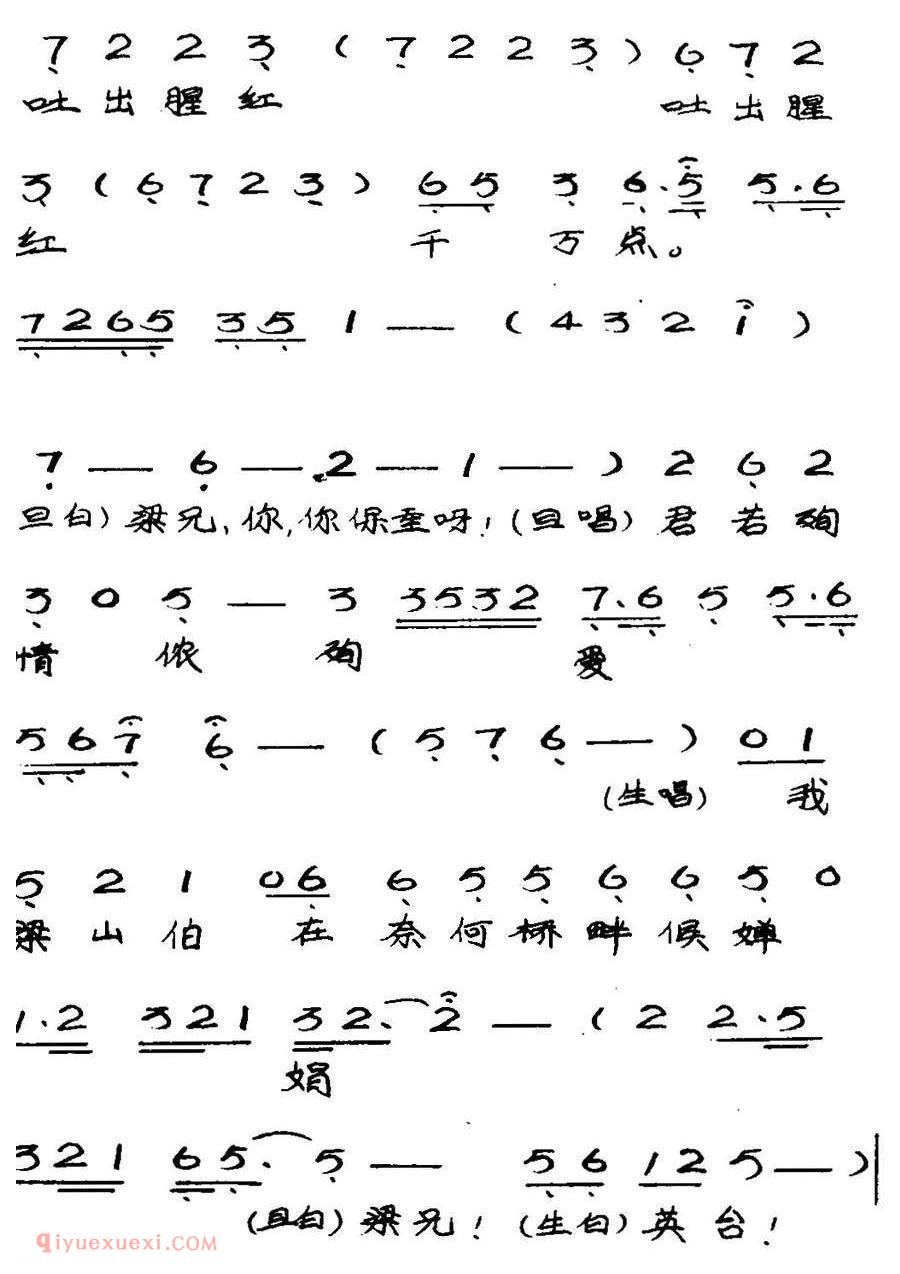 7 2 2 3 ( 7 2 2 3 ) 6 7 2
吐 出 腥 红 吐 出 腥
3 ( 6 7 2 3 ) 6 5 3 6.5 5.6
红 千 万 点。
7265 35 1 — ( 4 3 2 1 )
7 — 6 — 2 — 1 — ) 2 6 2
旦白) 梁兄, 你, 你保重呀! (旦唱) 君 若 殉
3 0 5 — 3 3532 7.6 5 5.6
情 侬 殉 爱
567 6 — ( 5 7 6 — ) 01
(生唱) 我
5 2 1 06 6 5 5 6 6 5 0
梁 山 伯 在 奈 何 桥 畔 候 婵
1.2 321 32. 2 — ( 2 2.5
娟
321 65. 5 — 56 12 5 — )
(旦白) 梁兄! (生白) 英台!
qiyuexuexi.com